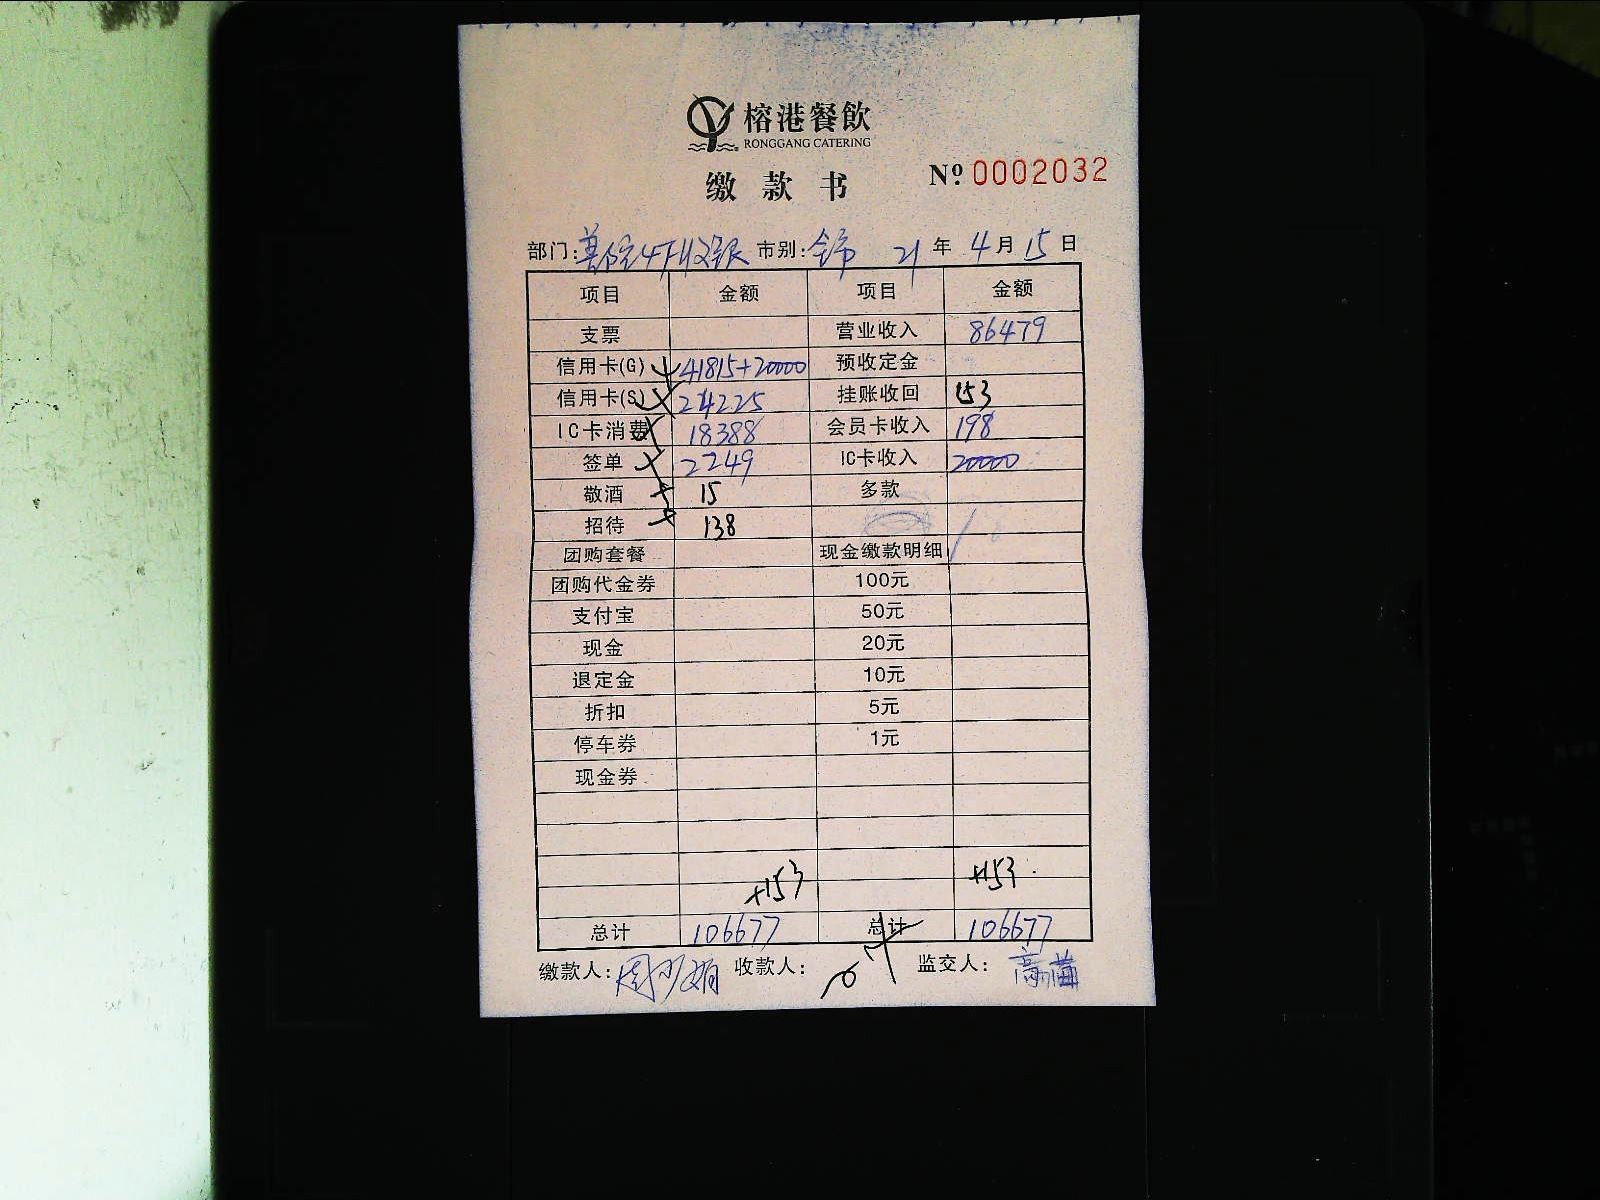 榕港餐飲
RONGGANG CATERING
缴款书 Nº 0002032
部门: 4F收银 市别: 全市 21年4月15日
项目 金额 项目 金额
支票 营业收入 86479
信用卡(G) 41815+20000 预收定金
信用卡(S) 24225 挂账收回 153
IC卡消费 18388 会员卡收入 198
签单 2249 IC卡收入 20000
敬酒 15 多款
招待 138
团购套餐 现金缴款明细
团购代金券 100元
支付宝 50元
现金 20元
退定金 10元
折扣 5元
停车券 1元
现金券
+153 +153
总计 106677 总计 106677
缴款人: 周 娟 收款人: 监交人: 高